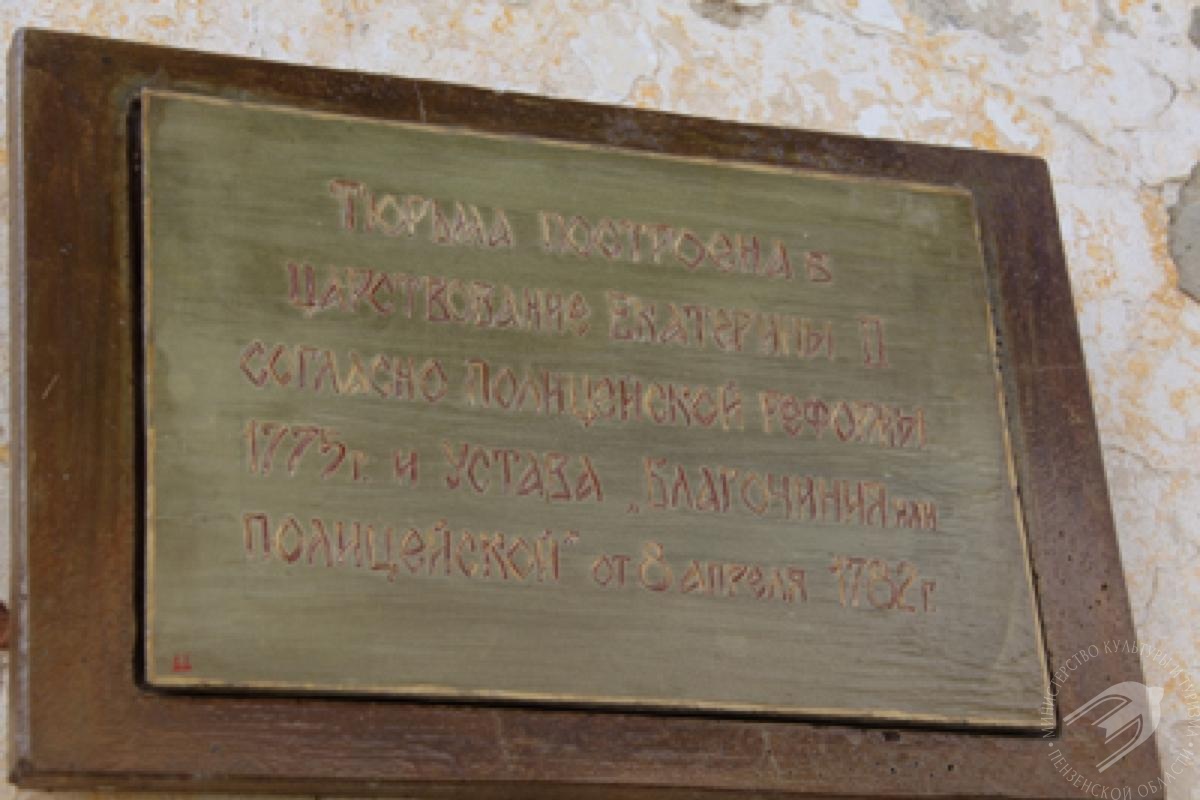 Тюрьма построена в
царствование Екатерины II
согласно полицейской реформы
1775г. и устава „Благочиния или
полицейской" от 8 апреля 1782г.
МИНИСТЕРСТВО КУЛЬТУРЫ
ПЕНЗЕНСКОЙ ОБЛАСТИ